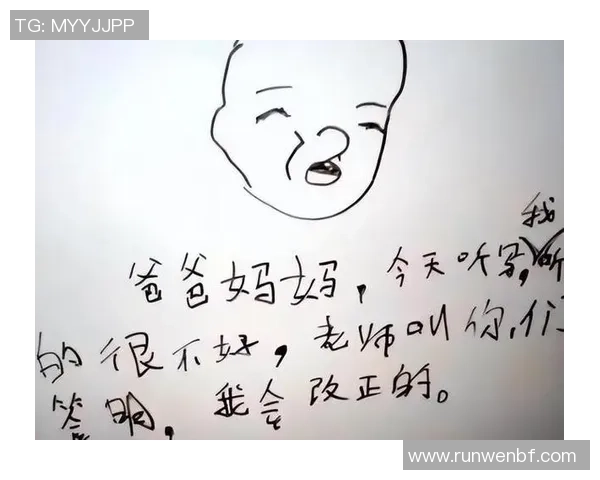 TG: MYYJJPP
爸爸妈妈，今天听写，我听
的很不好，老师叫你们
答明，我会改正的。
www.runwenbf.com